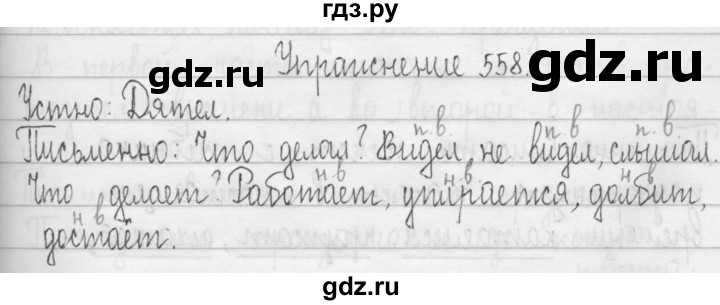 гдз.ру
Упражнение 558.
gdz.ru
gdz.ru
Устно: Дятел.
п. в. п. в п. в.
Письменно: Что делал? Видел, не видел, слышал.
н в н. в. н в
Что делает? Работает, упирается, долбит,
н. в.
достаёт.
gdz.ru
gdz.ru